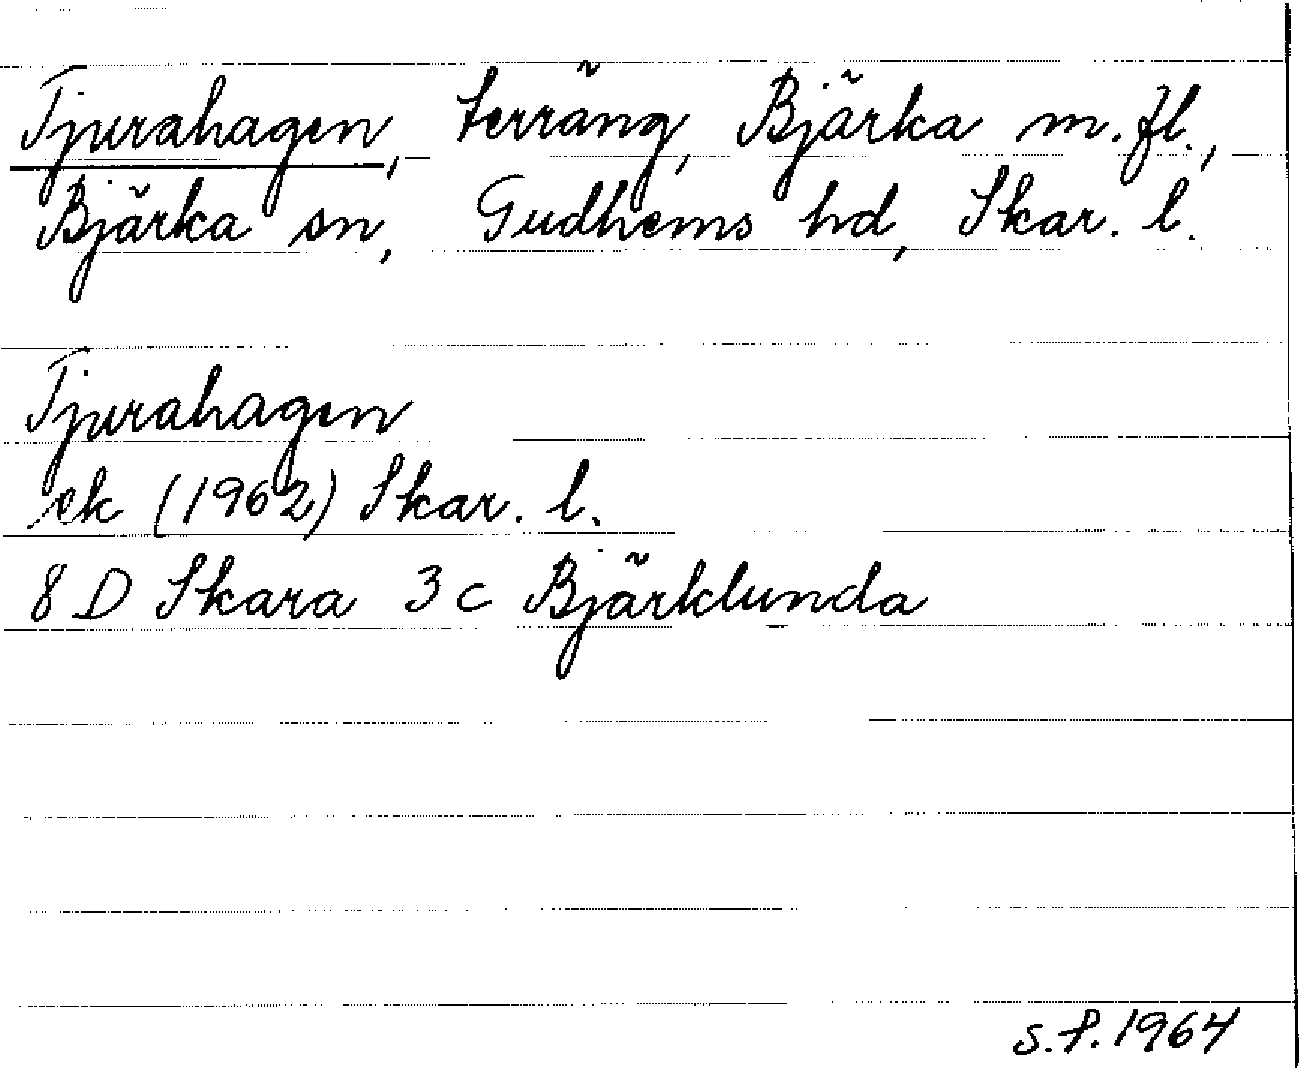 Tjurahagen, terräng, Bjärka m.fl.,
Bjärka sn, Gudhems hd, Skar. l.
Tjurahagen
ek (1962) Skar. l.
8 D Skara 3 c Bjärklunda
S.P. 1964